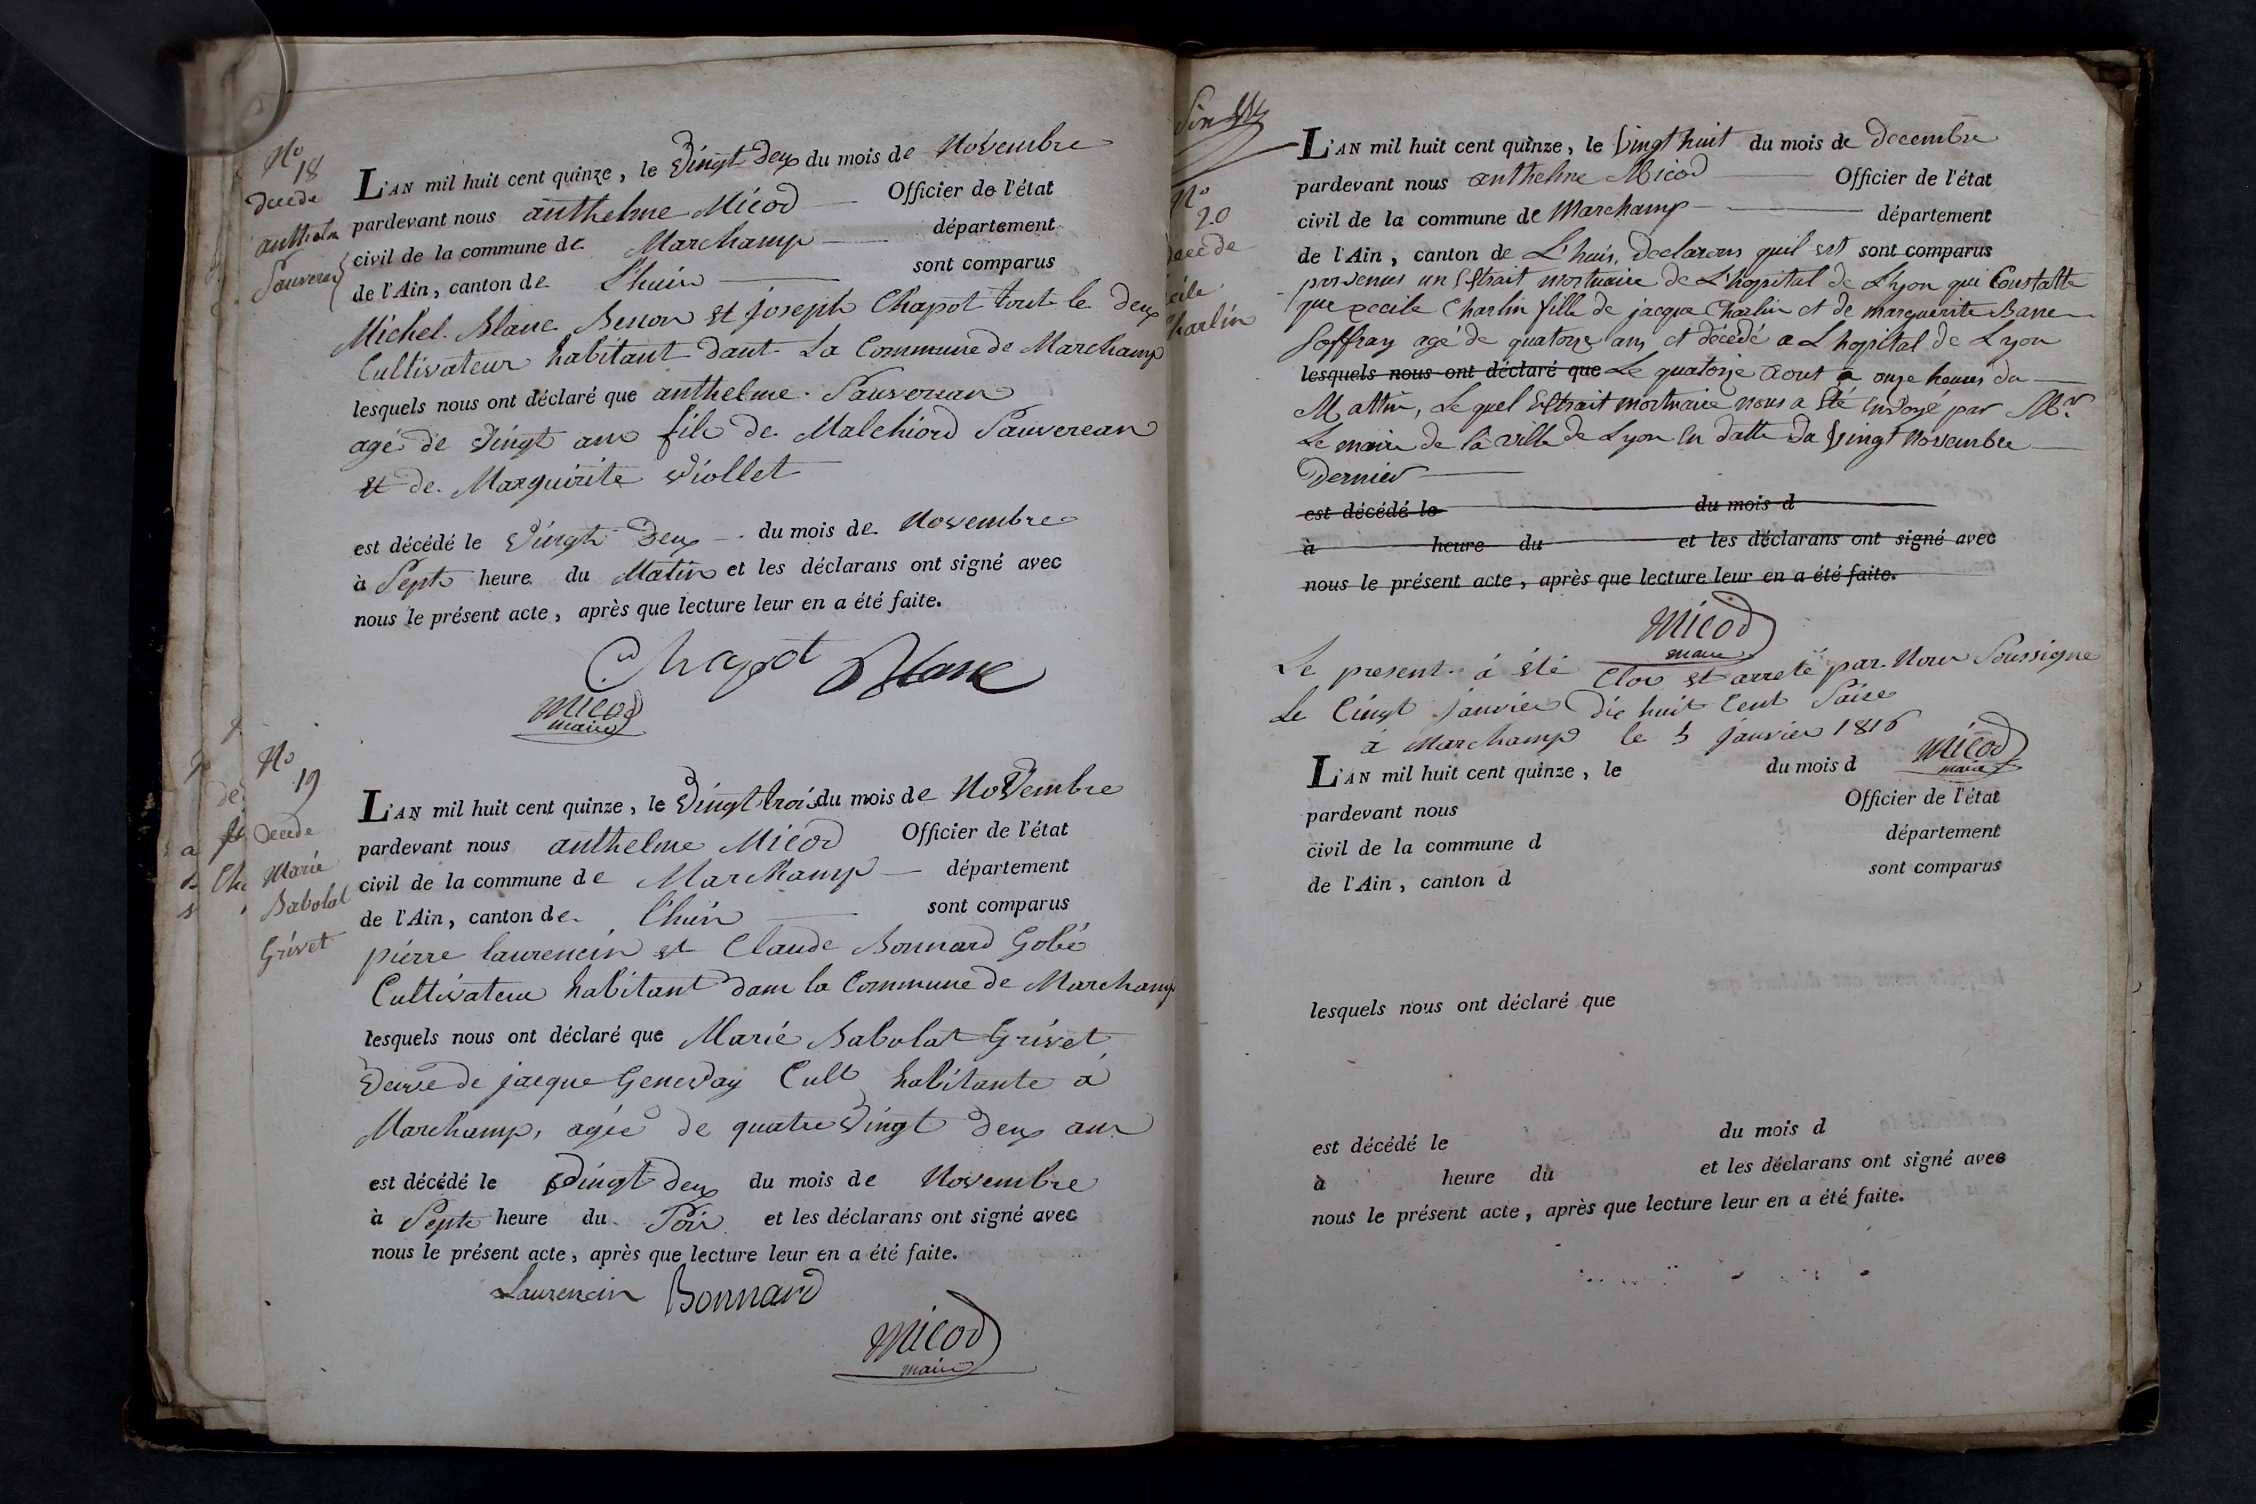 No
18
décède
anthelm
Sauverean
L'AN mil huit cent quinze, le vingt deux du mois de Novembre
pardevant nous anthelme Micod Officier de l'état
civil de la commune de Marchamp département
de l'Ain, canton de Lhuis sont comparus
Michel Blanc Besson et joseph Chapot tout le deux
Cultivateur habitant dant La Commune de Marchamp
lesquels nous ont déclaré que anthelme Sauverean
agé de vingt ans fils de Malchiord Sauverean
et de Marguirite Viollet
est décédé le vingt deux du mois de Novembre
à Septe heure du Matin et les déclarans ont signé avec
nous le présent acte, après que lecture leur en a été faite.
Chapot Blanc
Micod
maire
No
19
Decede
Marie
Babolat
Grivet
L'AN mil huit cent quinze, le vingt trois du mois de Novembre
pardevant nous anthelme Micod Officier de l'état
civil de la commune de Marchamp département
de l'Ain, canton de Lhuis sont comparus
pierre laurencin et Claude Bonnard Gobé
Cultivateur habitant dans la Commune de Marchamp
lesquels nous ont déclaré que Marie Babolat Grivet
veuve de jacque Genevay Cult habitante à
Marchamp, agée de quatre vingt deux ans
est décédé le vingt deux du mois de Novembre
à Septe heure du Soir et les déclarans ont signé avec
nous le présent acte, après que lecture leur en a été faite.
Laurencin Bonnard
Micod
maire
No
20
decede
cecile
Charlin
L'AN mil huit cent quinze, le vingt huit du mois de decembre
pardevant nous anthelme Micod Officier de l'état
civil de la commune de Marchamp département
de l'Ain, canton de L'huis, declarons quil est sont comparus
parvenus un Extrait mortuaire de L'hopital de Lyon qui Constatte
que cecile Charlin fille de jacque Charlin et de marguerite Banne
Soffray agé de quatorze ans et décédé a L hopital de Lyon
lesquels nous ont déclaré que Le quatorze aout a onze heures du
Mattin, Le quel Extrait mortuaire nous a été envoyé par Mr
Le maire de la ville de Lyon en datte du vingt Novembre
Dernier
est décédé le du mois d
à heure du et les déclarans ont signé avec
nous le présent acte, après que lecture leur en a été faite.
Micod
maire
Le present à été Clos et arreté par Nous Soussigne
Le Cinq janvier dix huit Cent Saise
à Marchamp le 5 janvier 1816
Micod
maire
L'AN mil huit cent quinze, le du mois d
pardevant nous Officier de l'état
civil de la commune d département
de l'Ain, canton d sont comparus
lesquels nous ont déclaré que
est décédé le du mois d
à heure du et les déclarans ont signé avec
nous le présent acte, après que lecture leur en a été faite.